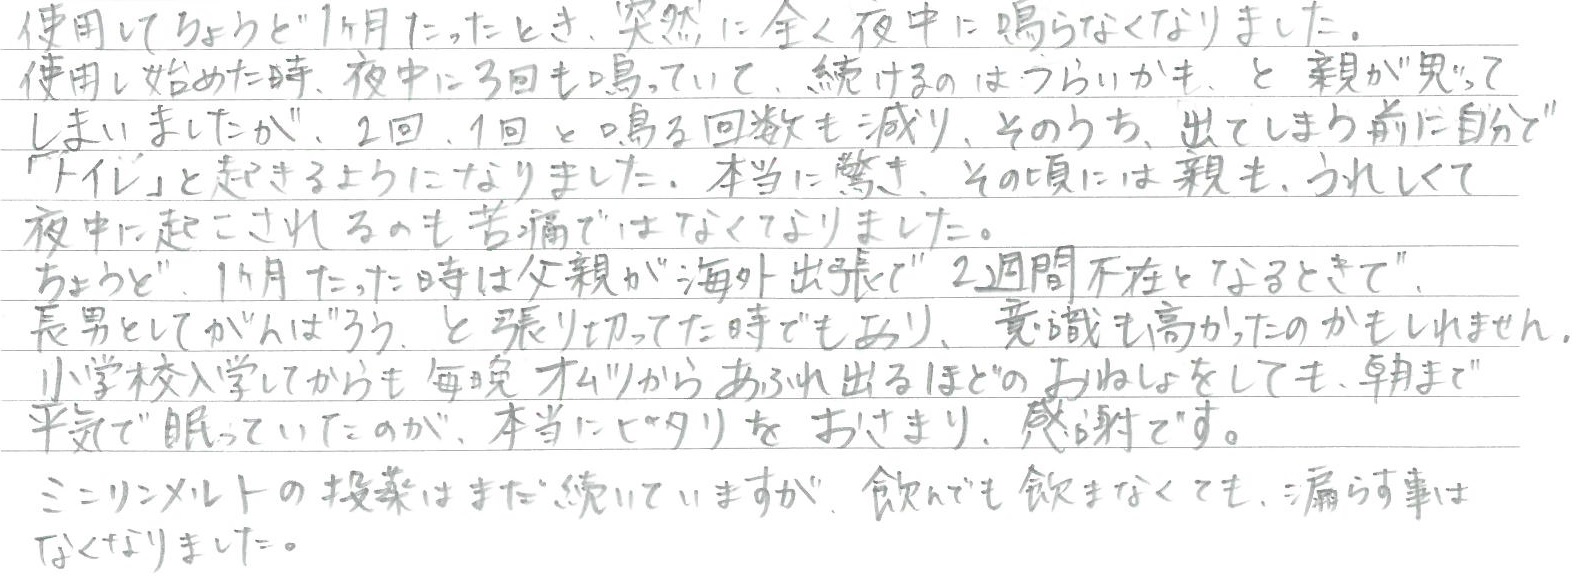 使用してちょうど1ヶ月たったとき、突然に全く夜中に鳴らなくなりました。
使用し始めた時、夜中に3回も鳴っていて、続けるのはつらいかも、と親が思って
しまいましたが、2回、1回と鳴る回数も減り、そのうち、出てしまう前に自分で
「トイレ」と起きるようになりました。本当に驚き、その頃には親も、うれしくて
夜中に起こされるのも苦痛ではなくなりました。
ちょうど、1ヶ月たった時は父親が海外出張で2週間不在となるときで、
長男としてがんばろう、と張り切ってた時でもあり、意識も高かったのかもしれません。
小学校入学してからも毎晩オムツからあふれ出るほどのおねしょをしても、朝まで
平気で眠っていたのが、本当にピタリとおさまり、感謝です。
ミニリンメルトの投薬はまだ続いていますが、飲んでも飲まなくても、漏らす事は
なくなりました。